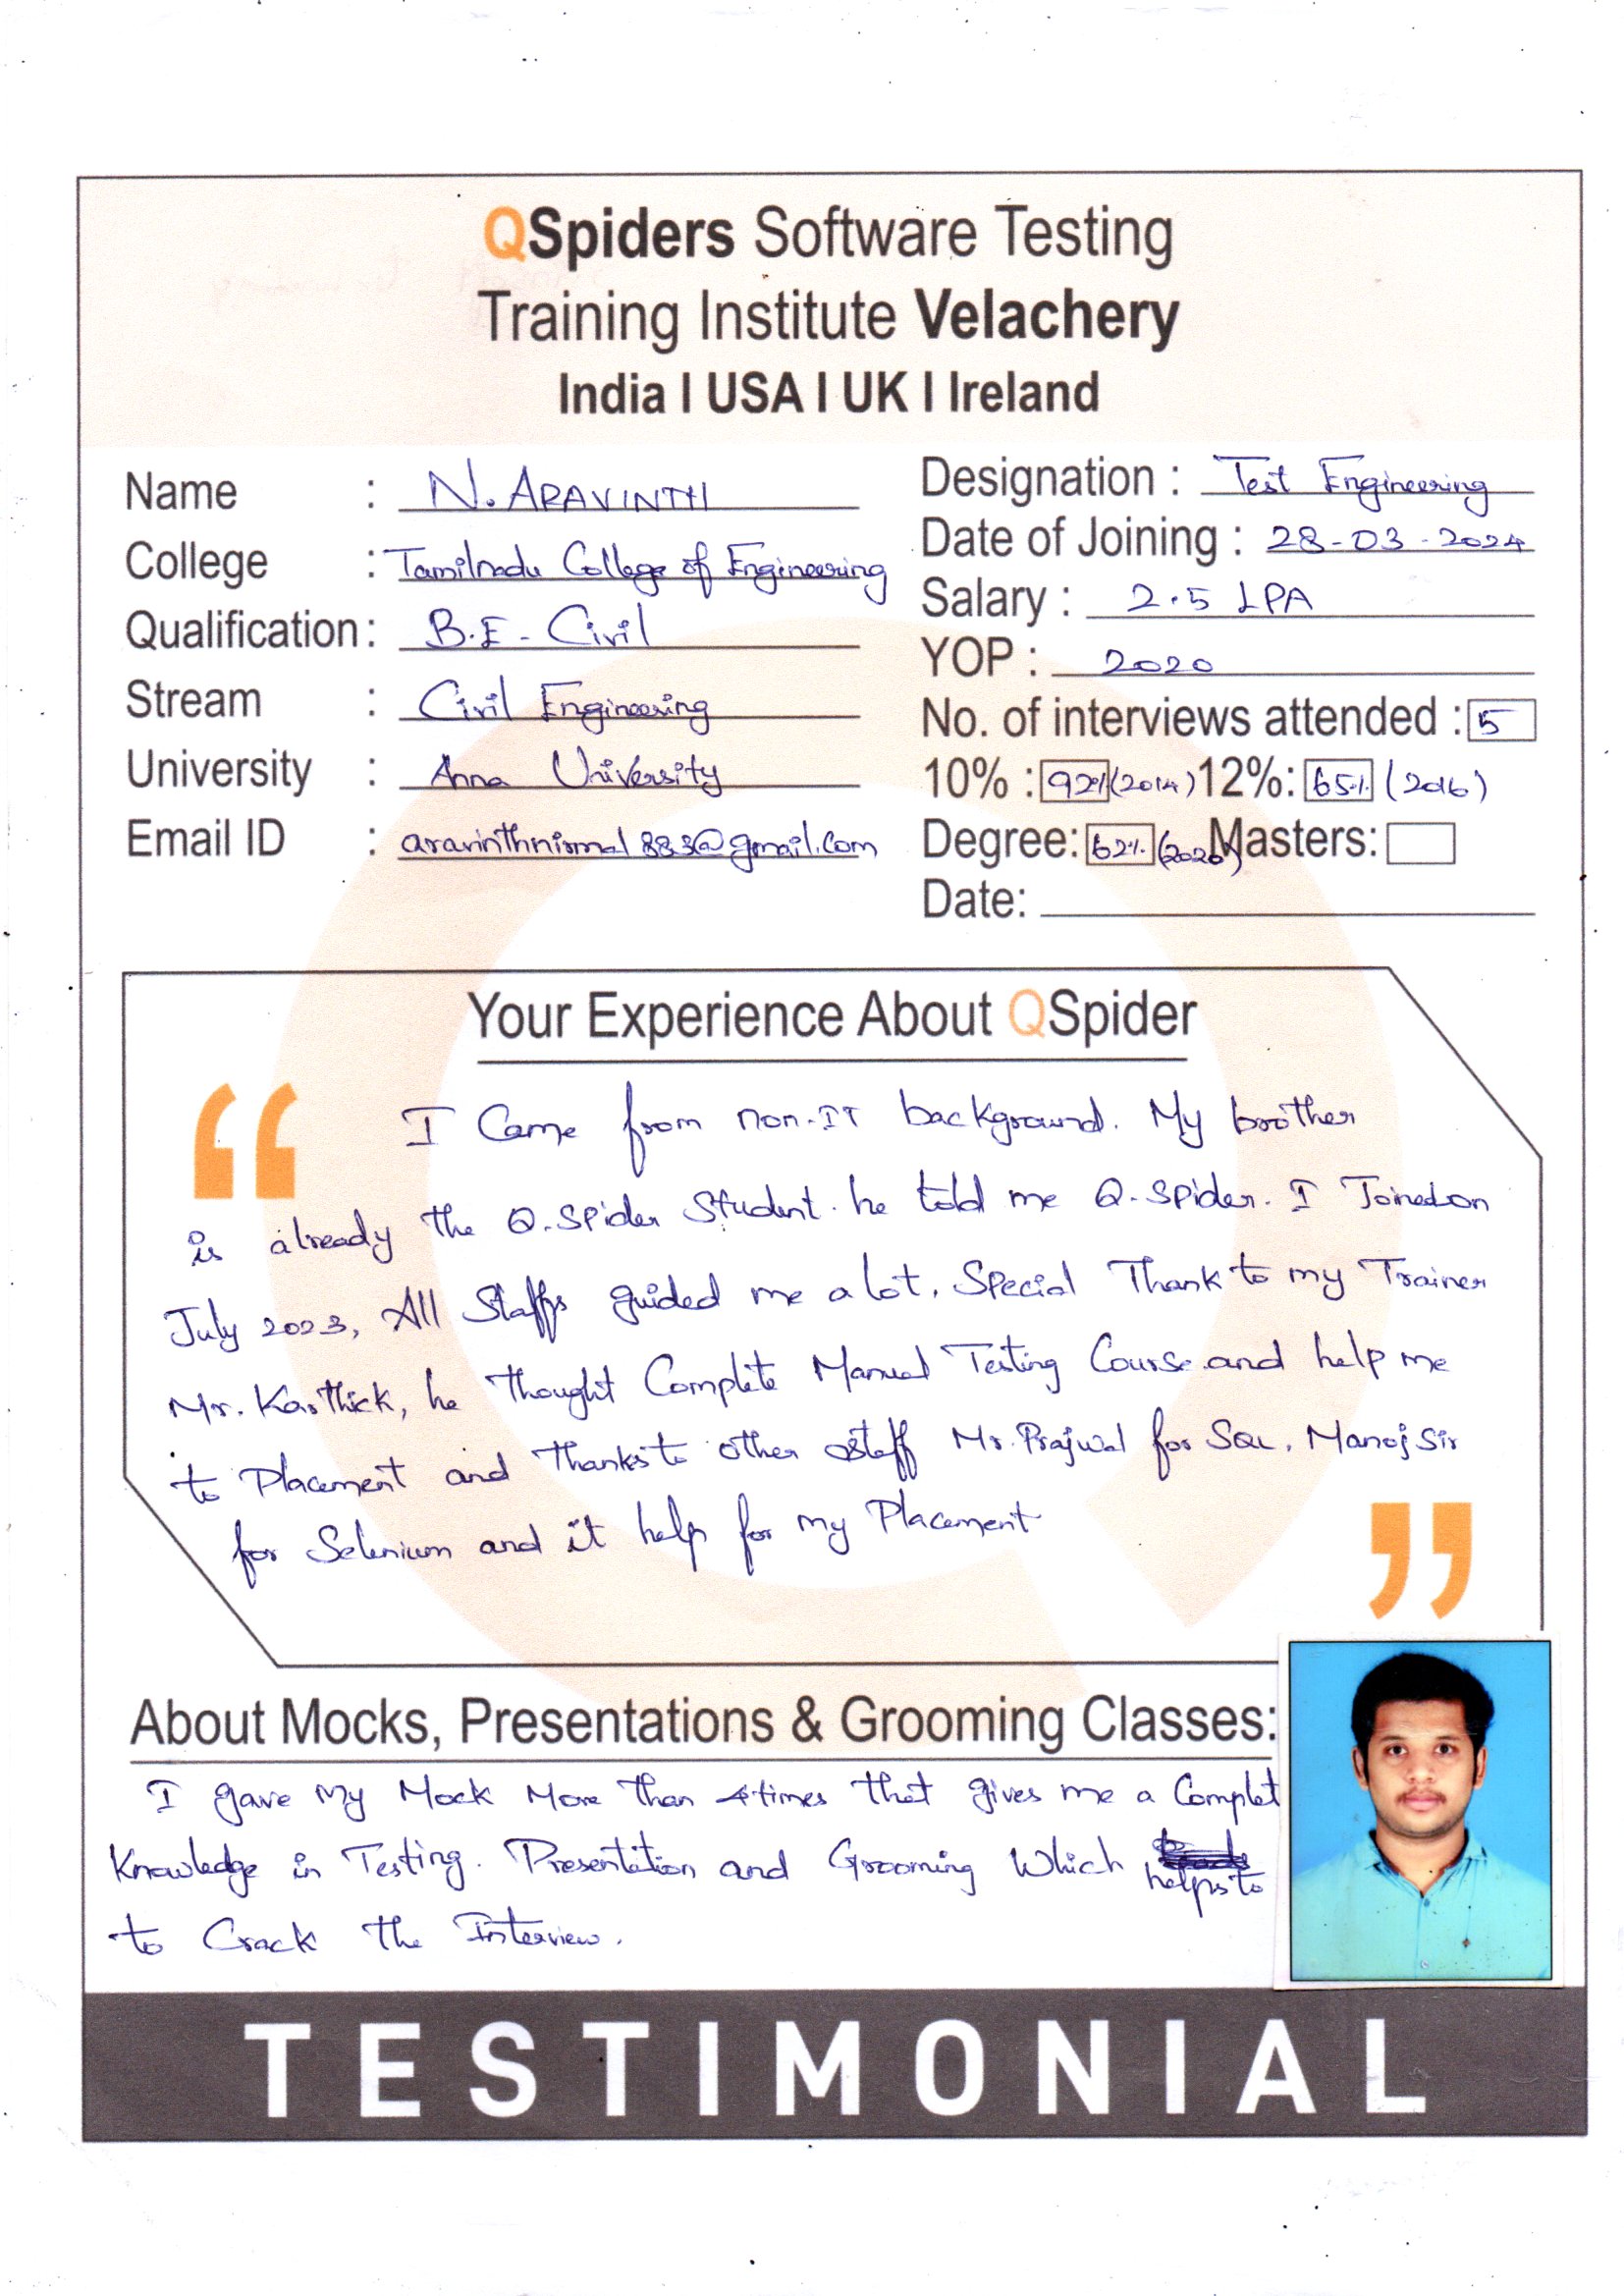 QSpiders Software Testing
Training Institute Velachery
India I USA I UK I Ireland
Name : N. ARAVINTH
College : Tamilnadu College of Engineering
Qualification : B.E - Civil
Stream : Civil Engineering
University : Anna University
Email ID : aravinthnirmal883@gmail.com
Designation : Test Engineering
Date of Joining : 28-03-2024
Salary : 2.5 LPA
YOP : 2020
No. of interviews attended : 5
10% : 92% (2014) 12%: 65% (2016)
Degree: 62% (2020) Masters:
Date:
Your Experience About QSpider
“ I Came from non-IT background. My brother
is already the Q-Spider Student. he told me Q-Spider. I Joined on
July 2023, All Staffs guided me a lot, Special Thank to my Trainer
Mr. Karthick, he thought Complete Manual Testing Course and help me
to Placement and Thanks to other staff Mr. Prajwal for SQL, Manoj Sir
for Selenium and it help for my Placement ”
About Mocks, Presentations & Grooming Classes:
I gave My Mock More Than 4 times that gives me a Complet
Knowledge in Testing. Presentation and Grooming Which helps to
to Crack the Interview.
TESTIMONIAL